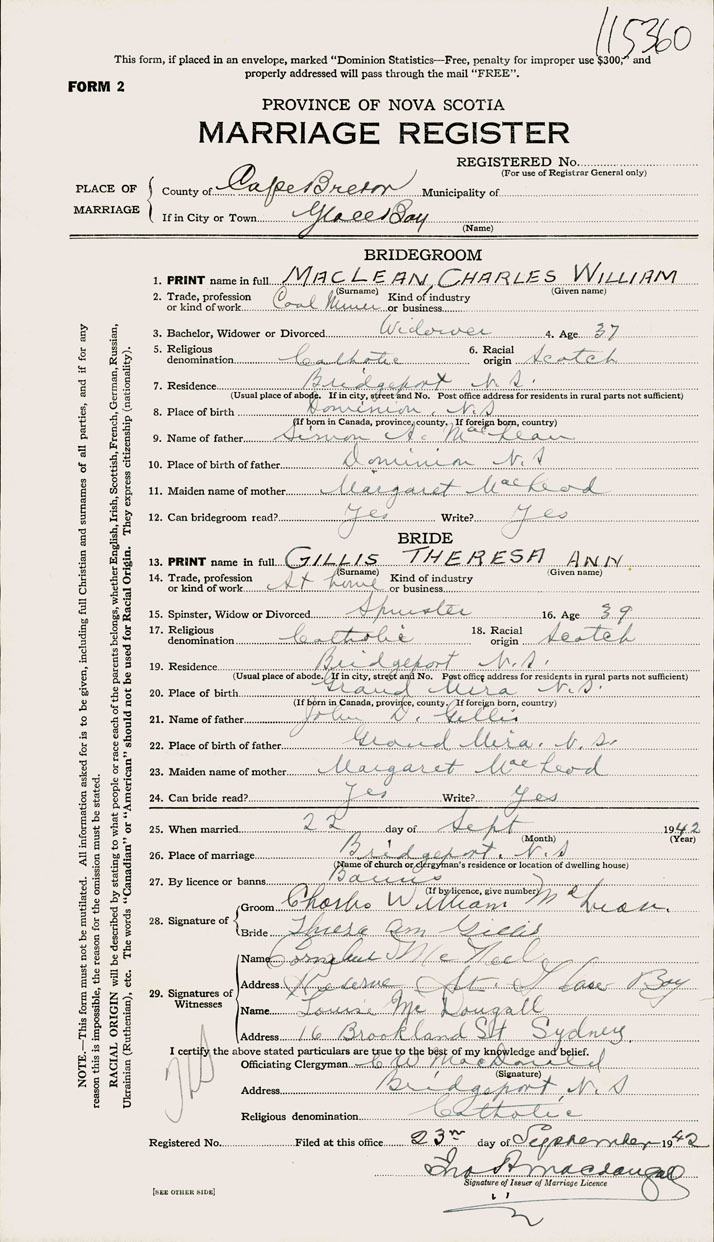 115360
This form, if placed in an envelope, marked "Dominion Statistics—Free, penalty for improper use $300;" and
properly addressed will pass through the mail "FREE".
FORM 2
PROVINCE OF NOVA SCOTIA
MARRIAGE REGISTER
REGISTERED No.
(For use of Registrar General only)
PLACE OF MARRIAGE
County of Cape Breton Municipality of
If in City or Town Glace Bay
(Name)
BRIDEGROOM
1. PRINT name in full MACLEAN, CHARLES WILLIAM
(Surname) (Given name)
2. Trade, profession or kind of work Coal Miner Kind of industry or business
3. Bachelor, Widower or Divorced Widower 4. Age 37
5. Religious denomination Catholic 6. Racial origin Scotch
7. Residence Bridgeport N.S.
(Usual place of abode. If in city, street and No. Post office address for residents in rural parts not sufficient)
8. Place of birth Dominion, N.S
(If born in Canada, province, county. If foreign born, country)
9. Name of father Simon A. MacLean
10. Place of father Dominion N.S
11. Maiden name of mother Margaret MacLeod
12. Can bridegroom read? Yes Write? Yes
BRIDE
13. PRINT name in full GILLIS THERESA ANN
(Surname) (Given name)
14. Trade, profession or kind of work At home Kind of industry or business
15. Spinster, Widow or Divorced Spinster 16. Age 39
17. Religious denomination Catholic 18. Racial origin Scotch
19. Residence Bridgeport N.S.
(Usual place of abode. If in city, street and No. Post office address for residents in rural parts not sufficient)
20. Place of birth Grand Mira N.S.
(If born in Canada, province, county. If foreign born, country)
21. Name of father John D. Gillis
22. Place of birth of father Grand Mira. N.S.
23. Maiden name of mother Margaret MacLeod
24. Can bride read? Yes Write? Yes
25. When married 22 day of Sept 1942
(Month) (Year)
26. Place of marriage Bridgeport, N.S
(Name of church or clergyman's residence or location of dwelling house)
27. By licence or banns Banns
(If by licence, give number)
28. Signature of
Groom Charles William McLean.
Bride Theresa Ann Gillis
29. Signatures of Witnesses
Name McNeil
Address Reserve St. Glace Bay
Name Louise McDougall
Address 16 Brookland St Sydney
I certify the above stated particulars are true to the best of my knowledge and belief.
Officiating Clergyman C W MacDonald
(Signature)
Address Bridgeport, N.S
Religious denomination Catholic
Registered No. Filed at this office 23rd day of September 1942
Jno A Macdougall
Signature of Issuer of Marriage Licence
[SEE OTHER SIDE]
NOTE.—This form must not be mutilated. All information asked for is to be given, including full Christian and surnames of all parties, and if for any
reason this is impossible, the reason for the omission must be stated.
RACIAL ORIGIN will be described by stating to what people or race each of the parents belongs, whether English, Irish, Scottish, French, German, Russian,
Ukrainian (Ruthenian), etc. The words "Canadian" or "American" should not be used for Racial Origin. They express citizenship (nationality).